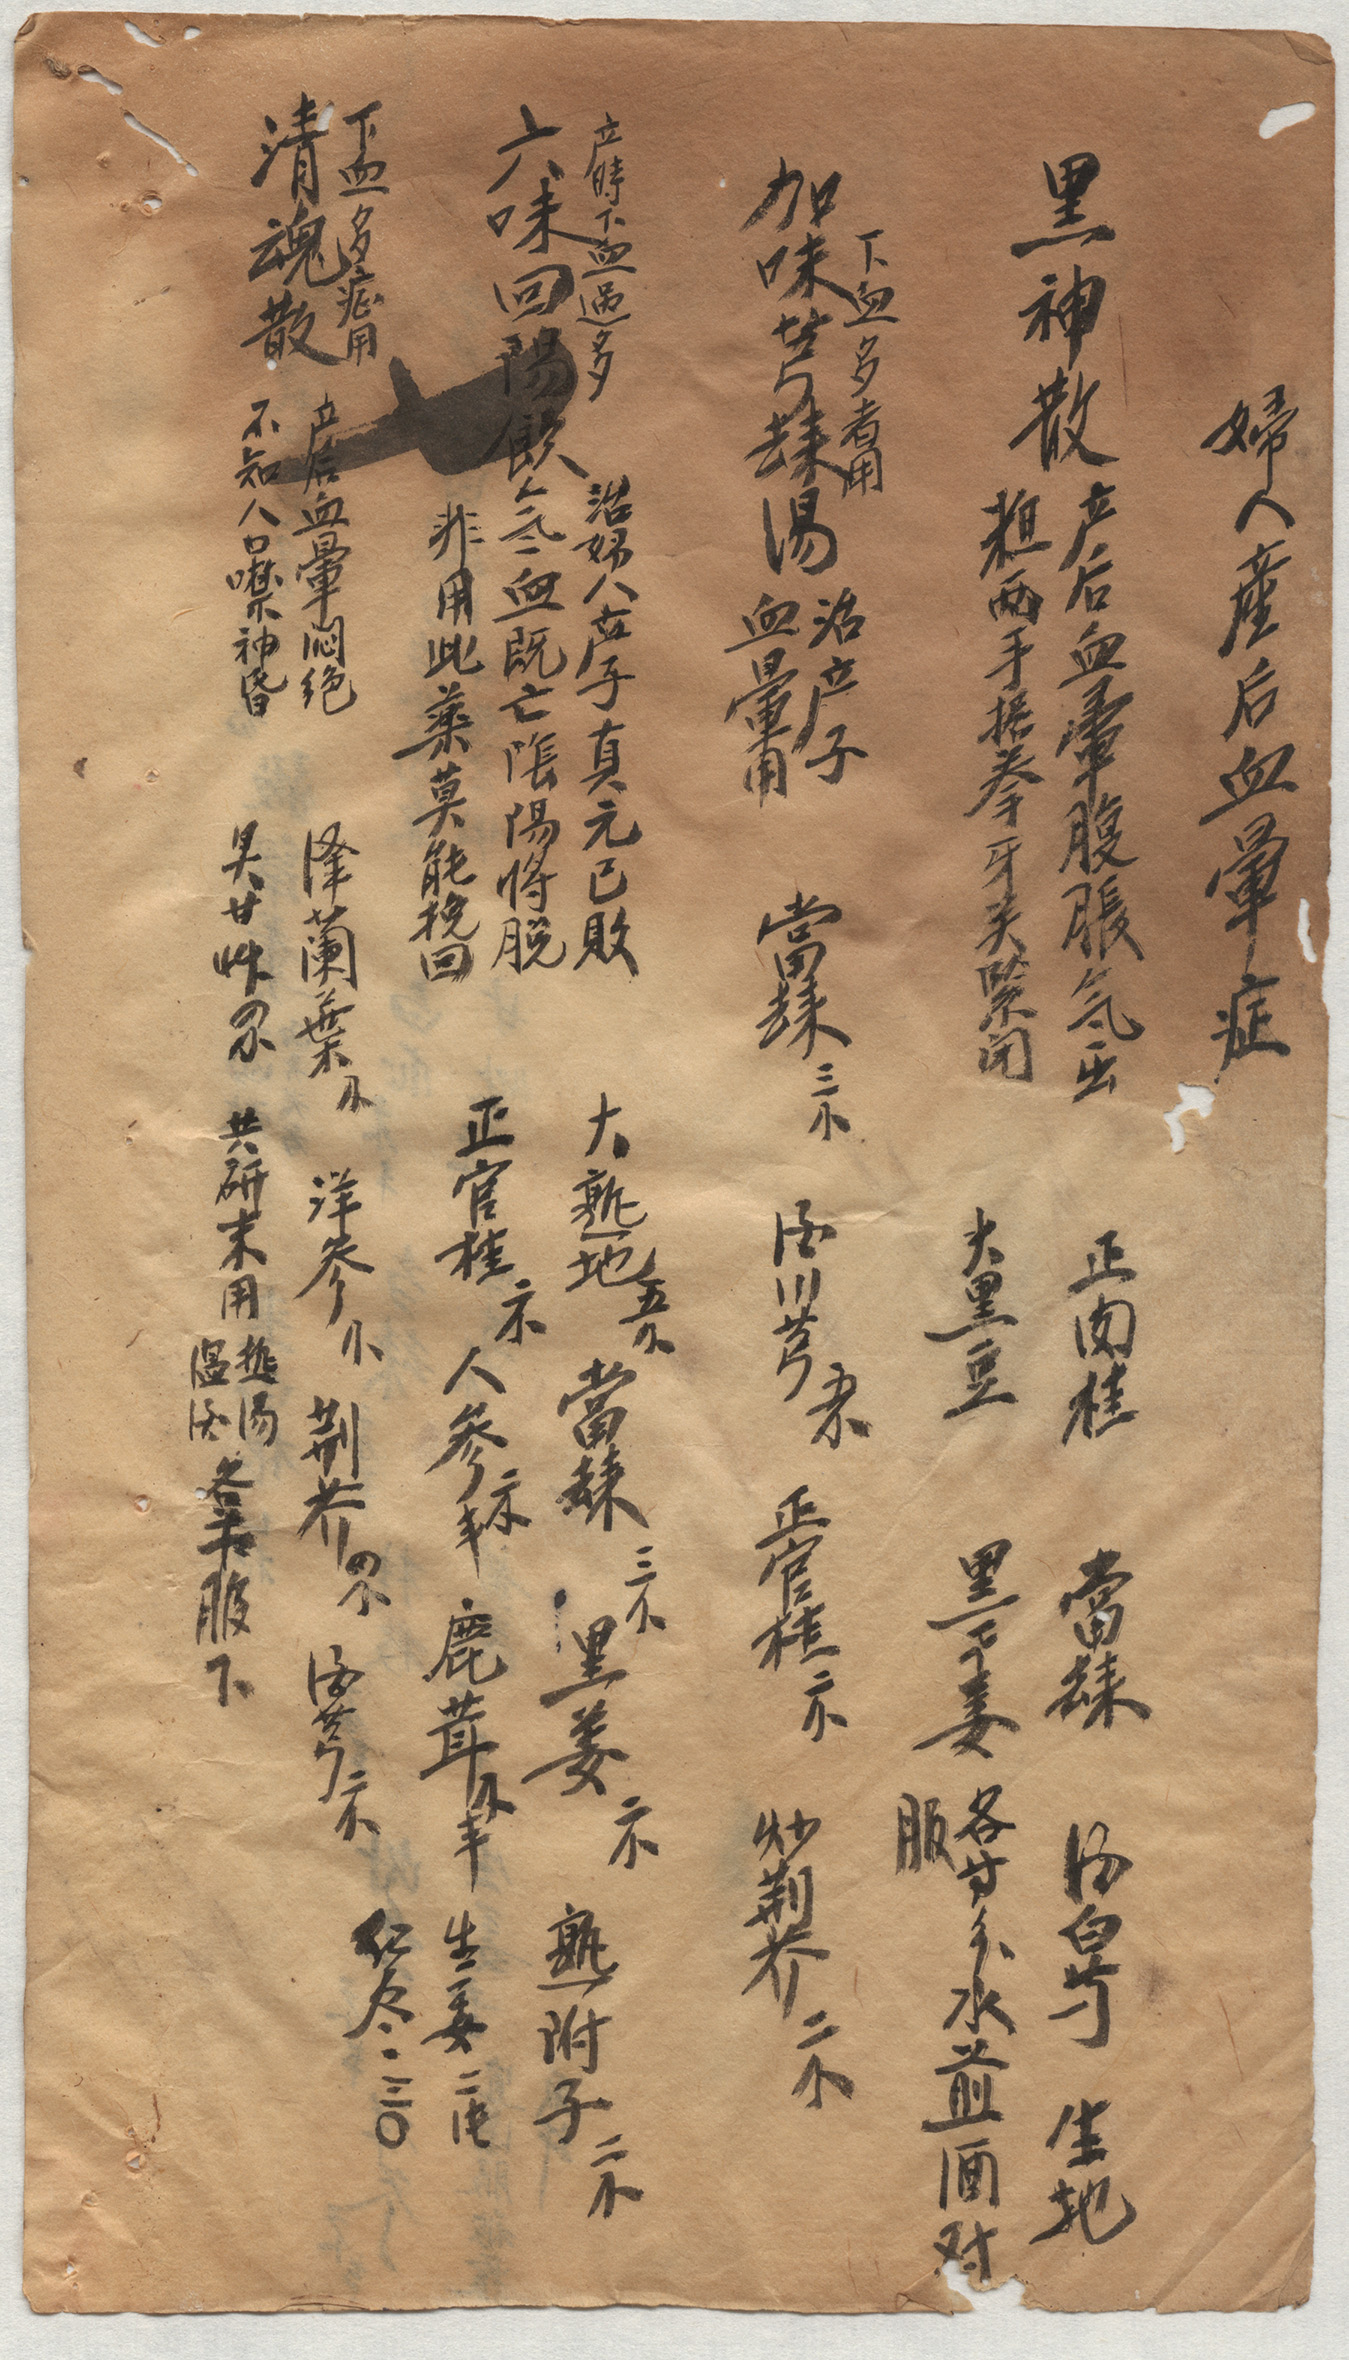 婦人產后血暈症
黑神散
产后血暈腹脹氣出
粗两手握拳牙关緊闭
正肉桂 當歸 酒白芍 生地
大黑豆 黑干姜 各等分水煎 对
服
下血多者用
加味芎歸湯
治产子
血暈用
當歸三 酒川芎 正官桂 炒荆芥二
产時下血過多
六味回陽飲
治婦人产子真元已敗
氣血既亡陰陽将脱
非用此藥莫能挽回
大熟地五 當歸三 黑姜 熟附子二
正官桂 人参 鹿茸 生姜二
红枣三
下血多症用
清魂散
产后血暈悶绝
不知人口噤神昏
泽蘭葉 洋参 荆芥 酒芎
炙甘艸 共研末用
热湯
温酒
各半服下